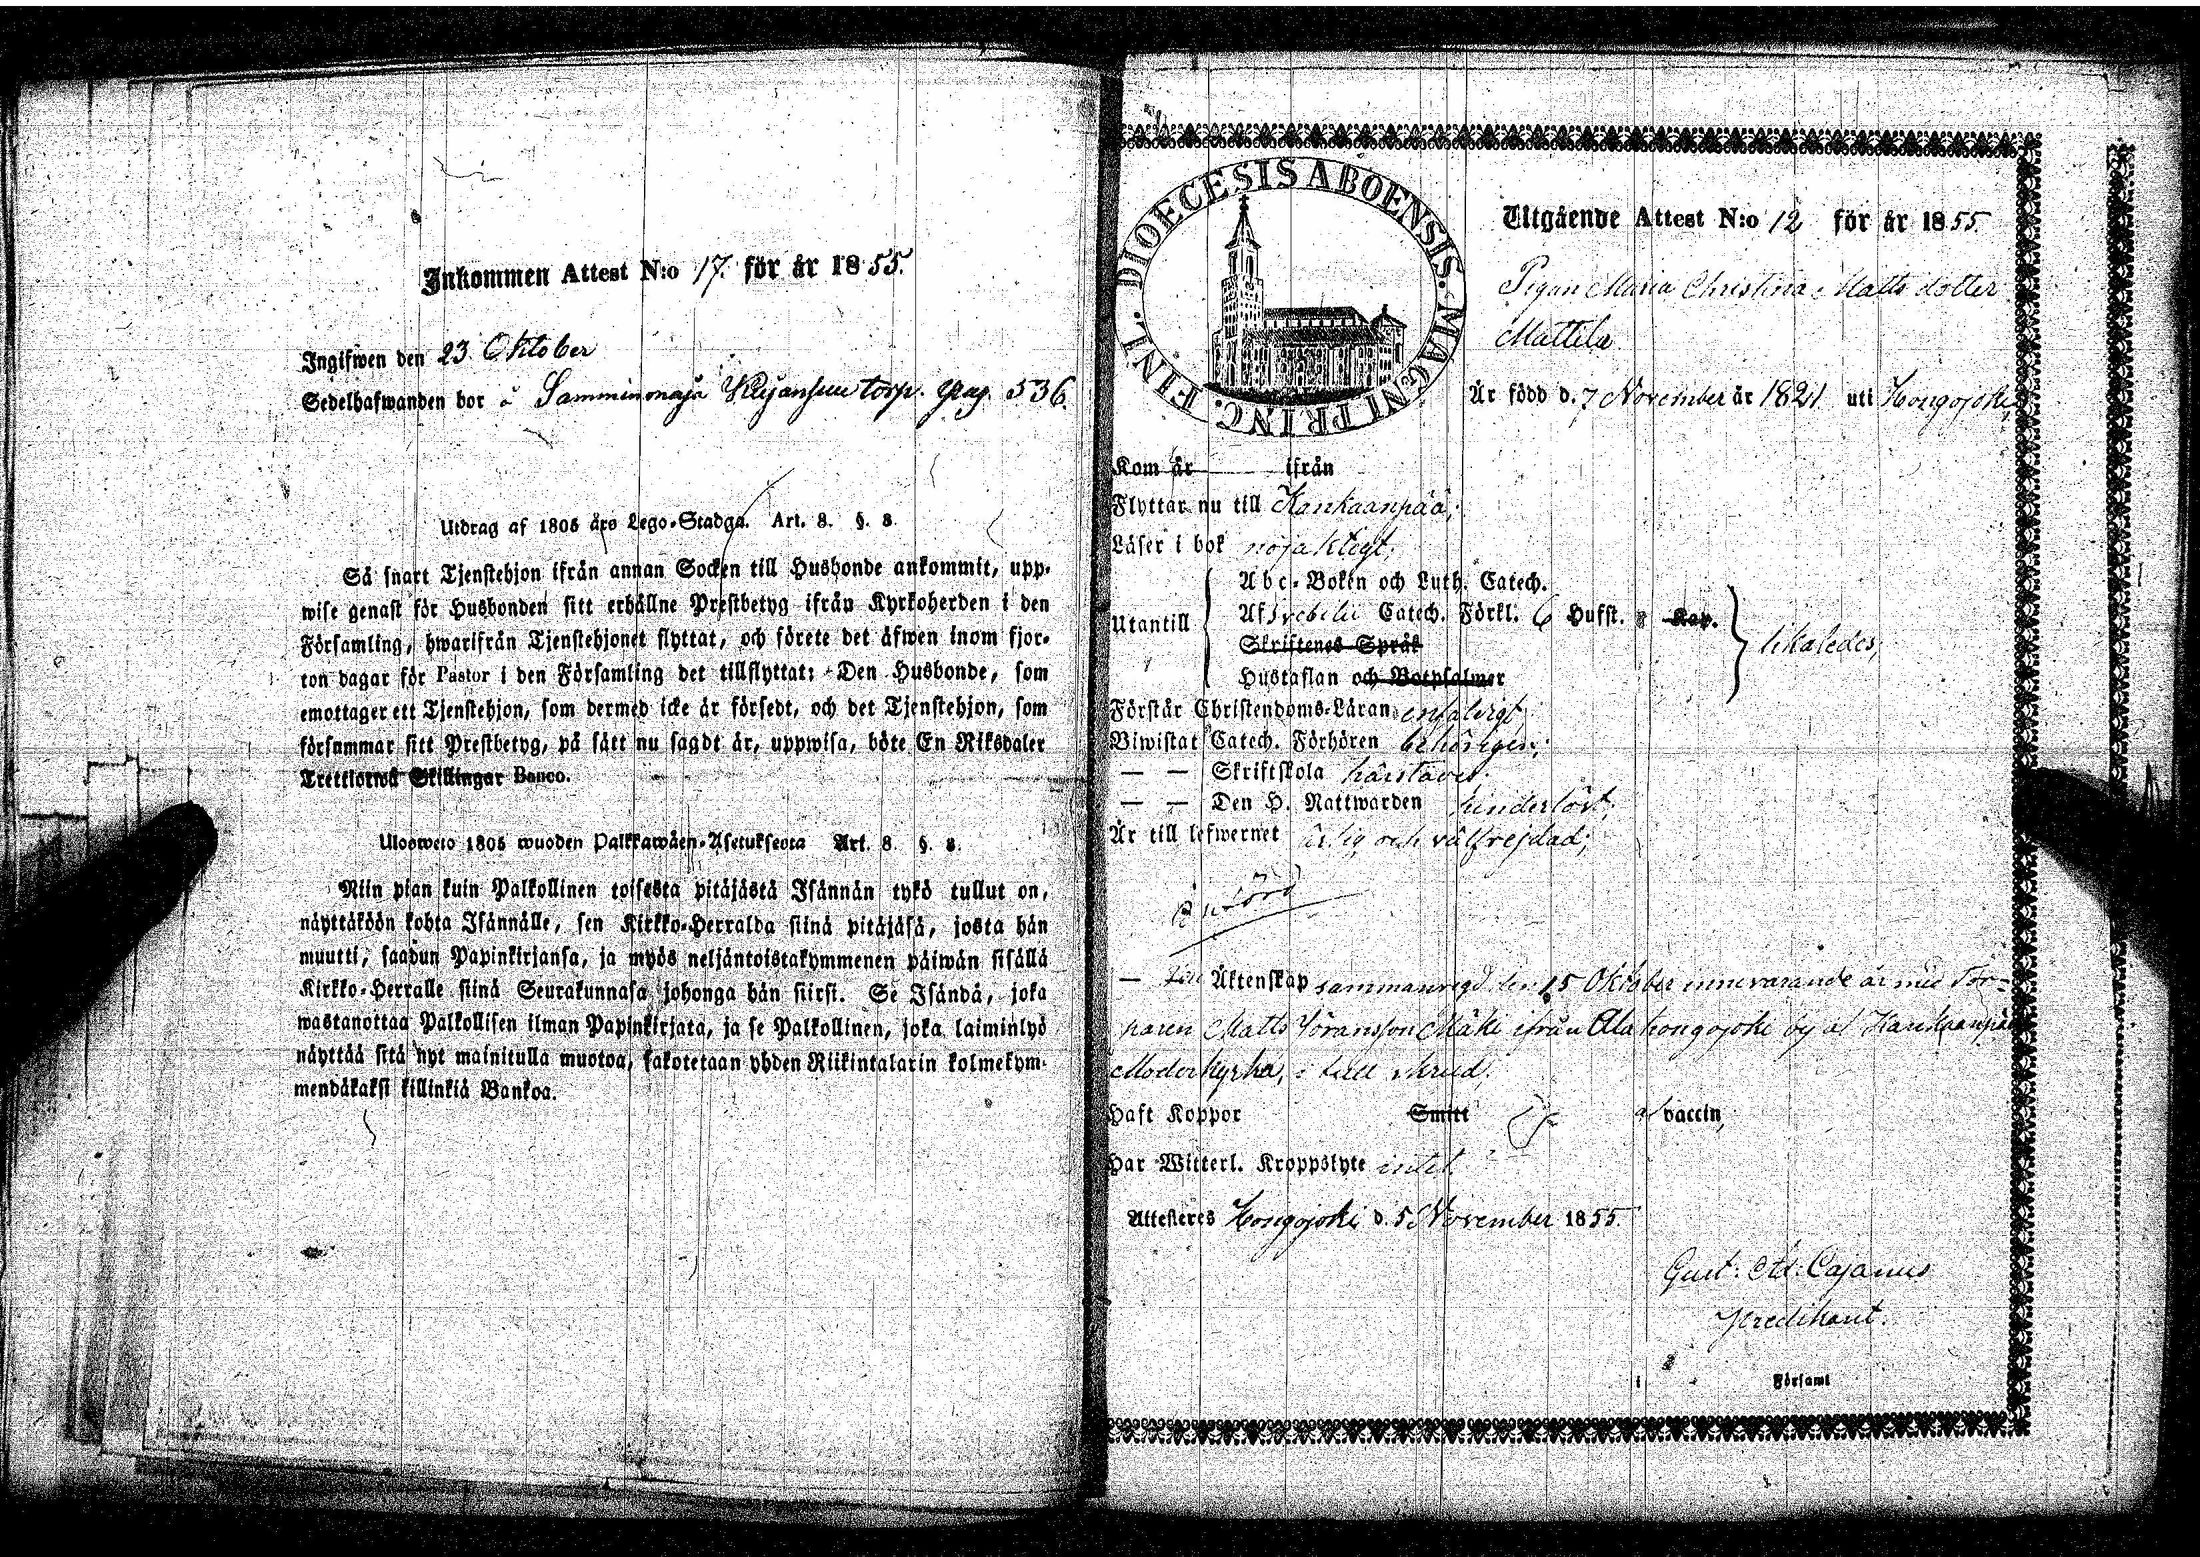 Inkommen Attest N:o 17. för år 1855.
Ingifwen den 23 Oktober
Sedelhafwanden bor å Samminmaja torp. pag. 536.
Utdrag af 1805 års Lego-Stadga. Art. 8. §. 8.
Så snart Tjenstehjon ifrån annan Socken till Husbonde ankommit, upp-
wise genast för Husbonden sitt erhållne Prestbetyg ifrån Kyrkoherden i den
Församling, hwarifrån Tjenstehjonet flyttat, och förete det äfwen inom fjor-
ton dagar för Pastor i den Församling det tillflyttat: Den Husbonde, som
emottager ett Tjenstehjon, som dermed icke är försedt, och det Tjenstehjon, som
försummar sitt Prestbetyg, på sätt nu sagdt är, uppwisa, böte En Riksdaler
Trettiotwå Skillingar Banco.
Ulosweto 1805 wuoden Palkkawäen-Asetuksesta Art. 8. §. 8.
Niin pian kuin Palkollinen toisesta pitäjästä Isännän tykö tullut on,
näyttäköön kohta Isännälle, sen Kirkko-Herralda siinä pitäjäsä, josta hän
muutti, saadun Papinkirjansa, ja myös neljäntoistakymmenen päiwän sisällä
Kirkko-Herralle siinä Seurakunnasa johonga hän siirsi. Se Isändä, joka
wastanottaa Palkollisen ilman Papinkirjata, ja se Palkollinen, joka laiminlyö
näyttää sitä nyt mainitulla muotoa, sakotetaan yhden Riikintalarin kolmekym-
mendäkaksi killinkiä Bankoa.
DIOECESIS ABOENSIS. MAGNI PRINC. FINL.
Utgående Attest N:o 12 för år 1855
Pigan Maria Christina Matts dotter
Mattila
Är född d. 7 November år 1821 uti Hongojoki
Kom år ifrån
Flyttar nu till Kankaanpää;
Läser i bok nöjaktigt.
Utantill
Abc-Boken och Luth. Catech.
Af Svebelii Catech. Förkl. 6 Hufst. Kap.
Skriftenes Språk
Hustaflan och Botpsalmer
likaledes,
Förstår Christendoms-Läran enfaldigt
Biwistat Catech. Förhören behörigen;
— — Skriftskola härstädes.
— — Den H. Nattwarden hinderlöst;
Är till lefwernet ärlig och välfrejdad;
— Till Äktenskap sammanvigd den 15 Oktober innevarande år med Tor-
paren Matts Göransson Mäki ifrån Ala hongojoki by af Kankaanpää
Moderkyrka, i full skrud.
Haft Koppor Smitt af vaccin,
Har Witterl. Kroppslyte intet
Attesteres Hongojoki d. 5 November 1855.
Gust. Ad. Cajanus
Predikant.
i Församl